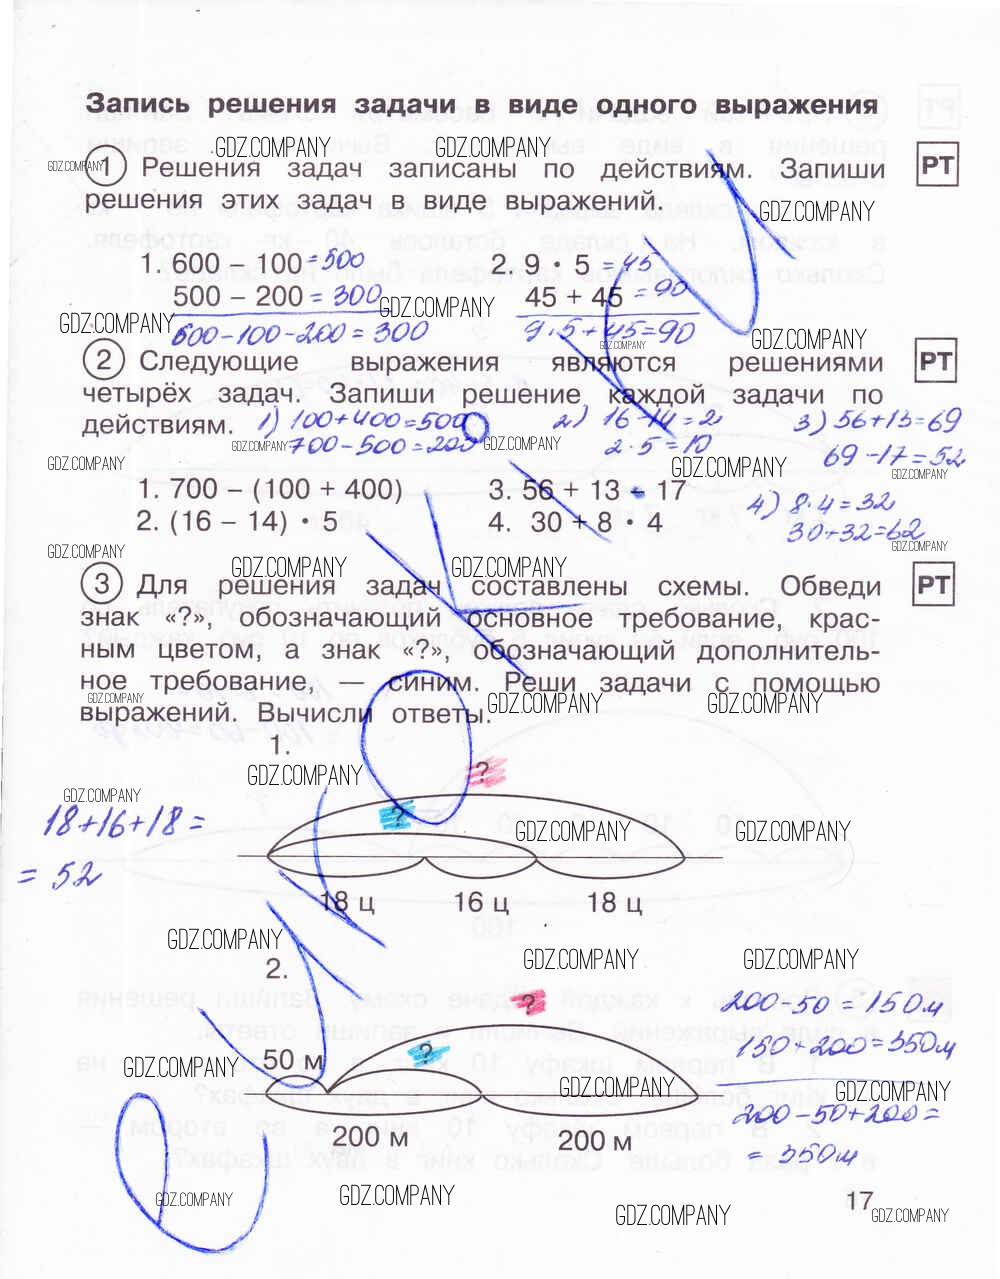 Запись решения задачи в виде одного выражения
GDZ.COMPANY GDZ.COMPANY
GDZ.COMPANY
1 Решения задач записаны по действиям. Запиши РТ
решения этих задач в виде выражений.
GDZ.COMPANY
1. 600 – 100 = 500 2. 9 • 5 = 45
500 – 200 = 300 45 + 45 = 90
GDZ.COMPANY
GDZ.COMPANY
600-100-200=300 9·5+45=90
GDZ.COMPANY
GDZ.COMPANY
2 Следующие выражения являются решениями РТ
четырёх задач. Запиши решение каждой задачи по
действиям. 1) 100+400=500 2) 16-14=2 3) 56+13=69
700-500=200 2·5=10 69-17=52
GDZ.COMPANY GDZ.COMPANY
GDZ.COMPANY GDZ.COMPANY GDZ.COMPANY
1. 700 – (100 + 400) 3. 56 + 13 – 17 4) 8·4=32
2. (16 – 14) • 5 4. 30 + 8 • 4 30+32=62
GDZ.COMPANY GDZ.COMPANY
GDZ.COMPANY GDZ.COMPANY
3 Для решения задач составлены схемы. Обведи РТ
знак «?», обозначающий основное требование, крас-
ным цветом, а знак «?», обозначающий дополнитель-
ное требование, — синим. Реши задачи с помощью
GDZ.COMPANY GDZ.COMPANY GDZ.COMPANY
выражений. Вычисли ответы.
1.
GDZ.COMPANY ?
GDZ.COMPANY
18+16+18= ? GDZ.COMPANY GDZ.COMPANY
= 52
18 ц 16 ц 18 ц
GDZ.COMPANY
GDZ.COMPANY GDZ.COMPANY
2.
? 200-50=150м
? 150+200=350м
50 м
GDZ.COMPANY GDZ.COMPANY GDZ.COMPANY
200-50+200=
200 м 200 м = 350м
GDZ.COMPANY GDZ.COMPANY
17
GDZ.COMPANY GDZ.COMPANY